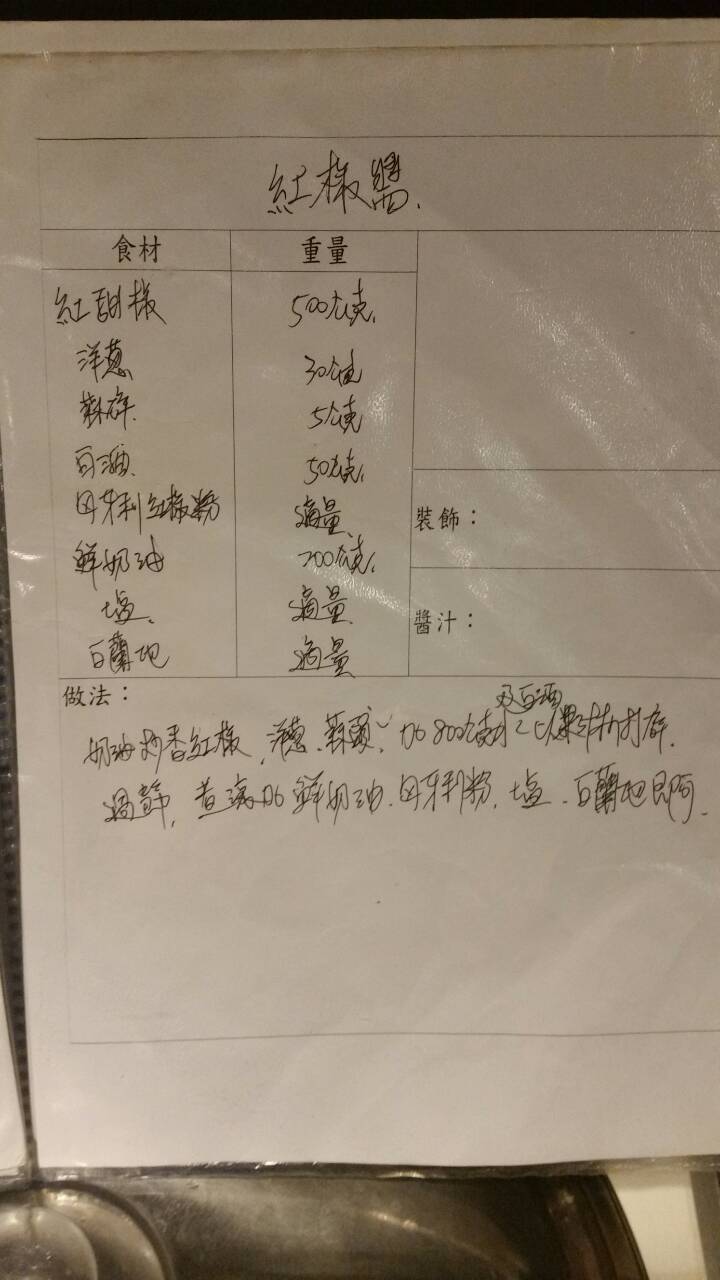 紅椒醬.
食材 重量
紅甜椒 500公克.
洋蔥 30公克
蒜碎. 5公克
白酒. 50公克.
匈牙利紅椒粉 適量.
鮮奶油 200公克.
塩. 適量.
白蘭地 適量
裝飾：
醬汁：
做法：
及白酒
奶油炒香紅椒、洋蔥、蒜頭、加800公克水 以果汁机打碎.
過篩, 煮滾加鮮奶油、匈牙利粉、塩、白蘭地即可.